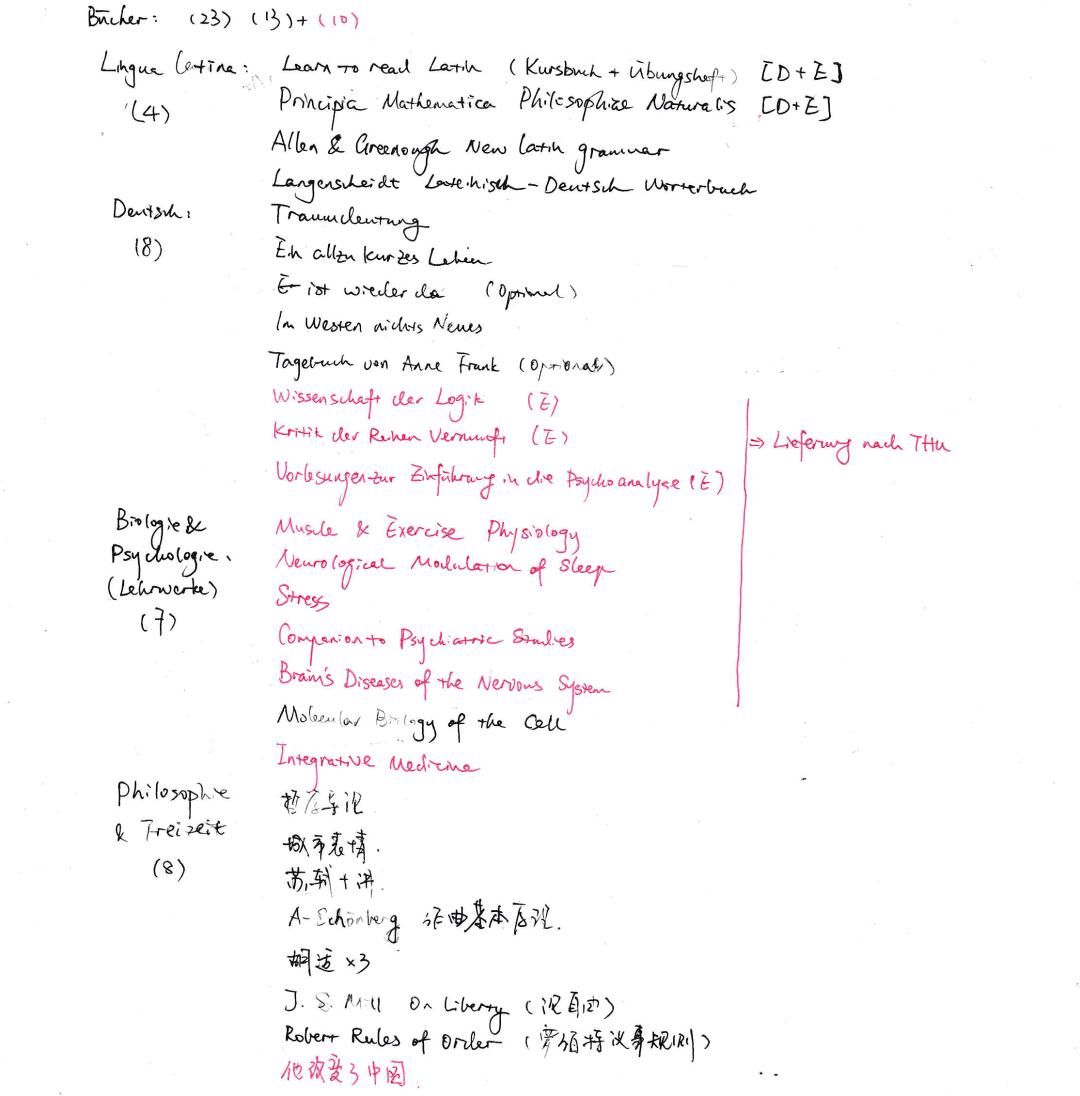 Bücher: (23) (13)+(10)
Lingua latina: Learn to read Latin (Kursbuch + Übungsheft) [D+E]
(4) Principia Mathematica Philosophiae Naturalis [D+E]
Allen & Greenough New latin grammar
Langenscheidt Lateinisch-Deutsch Wörterbuch
Deutsch: Traumdeutung
(8) Ein allzu kurzes Leben
Er ist wieder da (Optional)
Im Westen nichts Neues
Tagebuch von Anne Frank (Optional)
Wissenschaft der Logik (E)
Kritik der Reinen Vernunft (E) ⇒ Lieferung nach THU
Vorlesungen zur Einführung in die Psychoanalyse (E)
Biologie & Muscle & Exercise Physiology
Psychologie. Neurological Modulation of Sleep
(Lehrwerke) Stress
(7) Companion to Psychiatric Studies
Brain's Diseases of the Nervous System
Molecular Biology of the Cell
Integrative Medicine
Philosophie 哲学导论
& Freizeit 城市表情.
(8) 苏轼十讲.
A-Schönberg 作曲基本原理.
胡适 ×3
J. S. Mill On Liberty (论自由)
Robert Rules of Order (罗伯特议事规则)
他改变了中国.